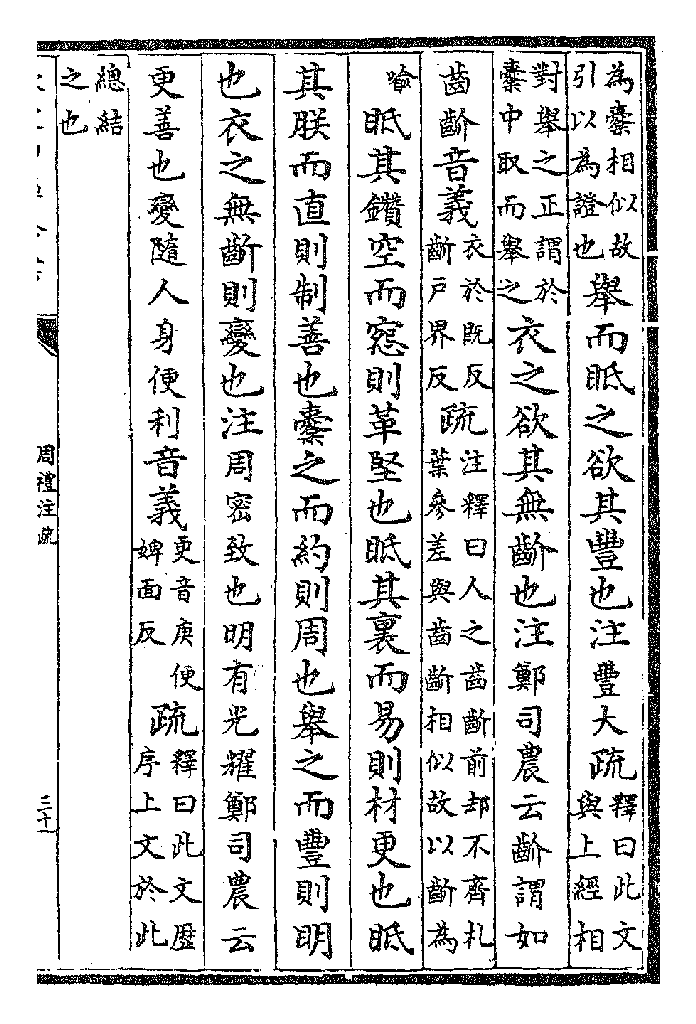 為櫜相似故
引以為證也
舉而眂之欲其豐也注豐大疏
釋曰此文
與上經相
對舉之正謂於
櫜中取而舉之
衣之欲其無齘也注鄭司農云齘謂如
齒齘音義
衣於既反
齘戶界反
疏
注釋曰人之齒齘前却不齊札
葉參差與齒齘相似故以齘為
喻
眂其鑽空而窓則革堅也眂其裏而易則材更也眂
其朕而直則制善也櫜之而約則周也舉之而豐則明
也衣之無齘則變也注周密致也明有光耀鄭司農云
更善也變隨人身便利音義
更音庚便
婢面反
疏
釋曰此文歴
序上文於此
總結
之也
周禮注疏
三十